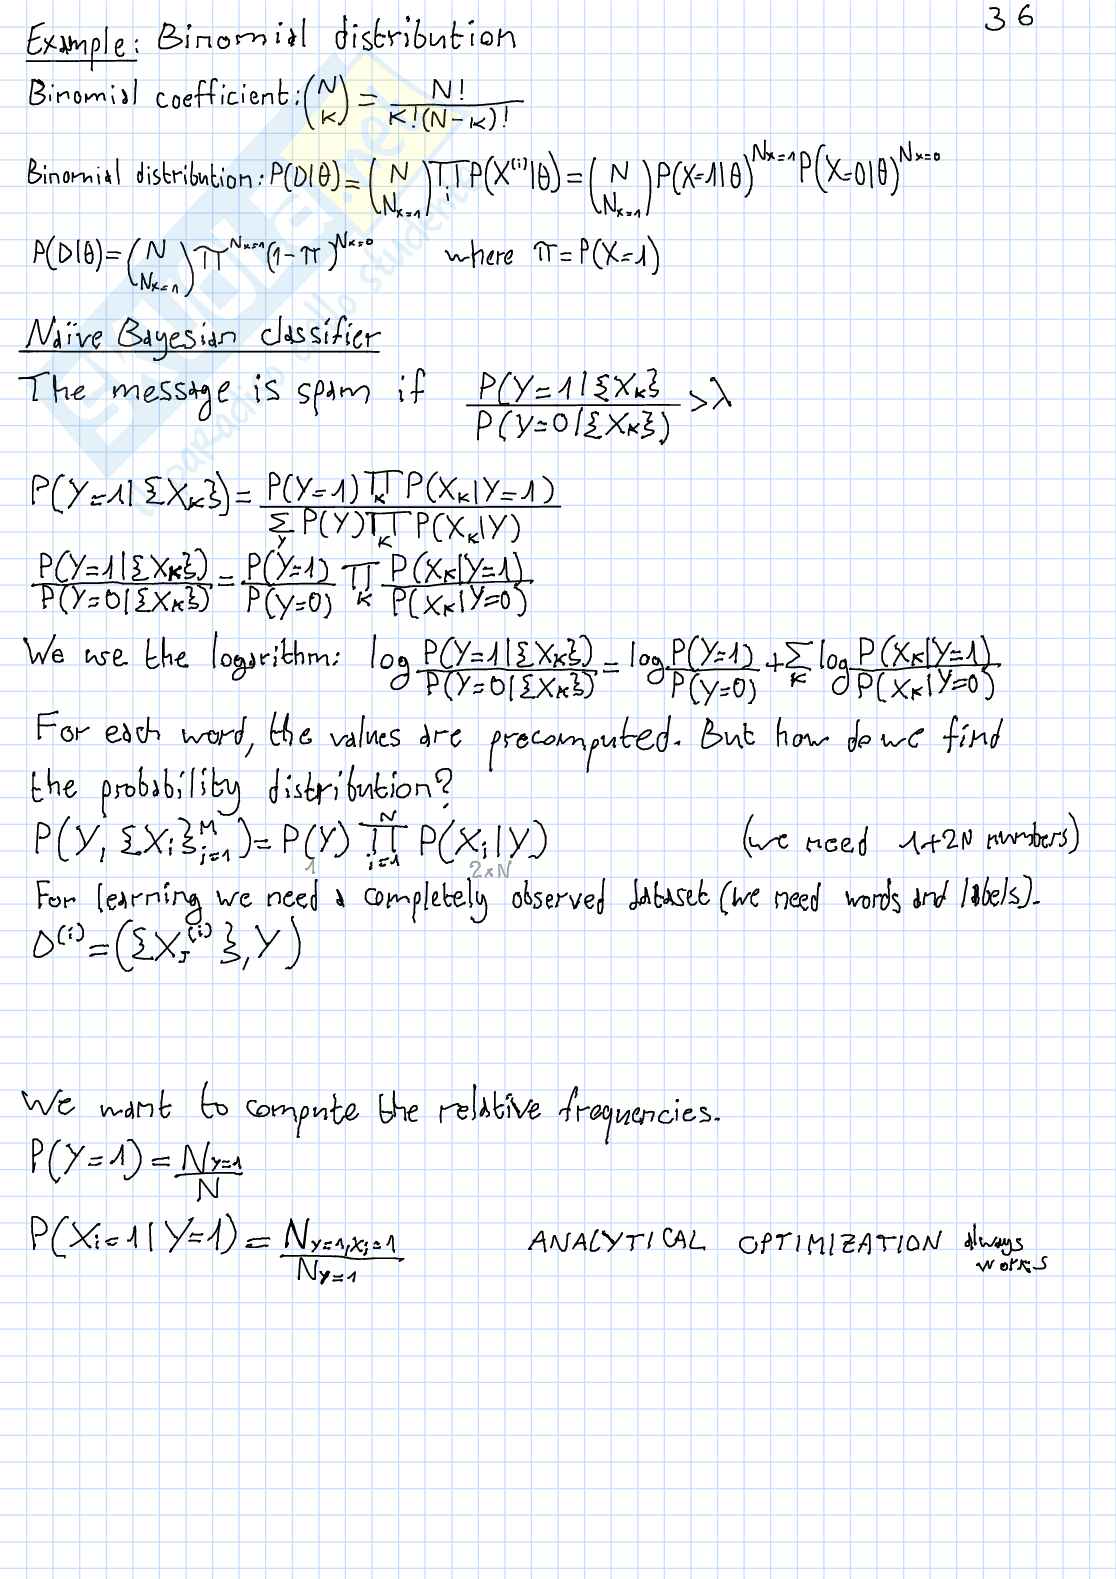 36
Example: Binomial distribution
Binomial coefficient: (N K) = N! / K!(N-K)!
Binomial distribution: P(D|θ) = (N N_{X=1}) ∏_i P(X^{(i)}|θ) = (N N_{X=1}) P(X=1|θ)^{N_{X=1}} P(X=0|θ)^{N_{X=0}}
P(D|θ) = (N N_{X=1}) π^{N_{X=1}} (1-π)^{N_{X=0}} where π = P(X=1)
Naïve Bayesian classifier
The message is spam if P(Y=1|{X_K} / P(Y=0|{X_K}) > λ
P(Y=1|{X_K}) = P(Y=1) ∏_K P(X_K|Y=1) / ∑_Y P(Y) ∏_K P(X_K|Y)
P(Y=1|{X_K}) / P(Y=0|{X_K}) = P(Y=1) / P(Y=0) ∏_K P(X_K|Y=1) / P(X_K|Y=0)
We use the logarithm: log P(Y=1|{X_K}) / P(Y=0|{X_K}) = log P(Y=1) / P(Y=0) + ∑_K log P(X_K|Y=1) / P(X_K|Y=0)
For each word, the values are precomputed. But how do we find
the probability distribution?
P(Y, {X_i}_{i=1}^M) = P(Y) ∏_{i=1}^N P(X_i|Y) (we need 1+2N numbers)
1 2×N
For learning we need a completely observed dataset (we need words and labels).
D^{(i)} = ({X_J^{(i)}}, Y)
We want to compute the relative frequencies.
P(Y=1) = N_{Y=1} / N
P(X_i=1|Y=1) = N_{Y=1,X_i=1} / N_{Y=1} ANALYTICAL OPTIMIZATION always
works